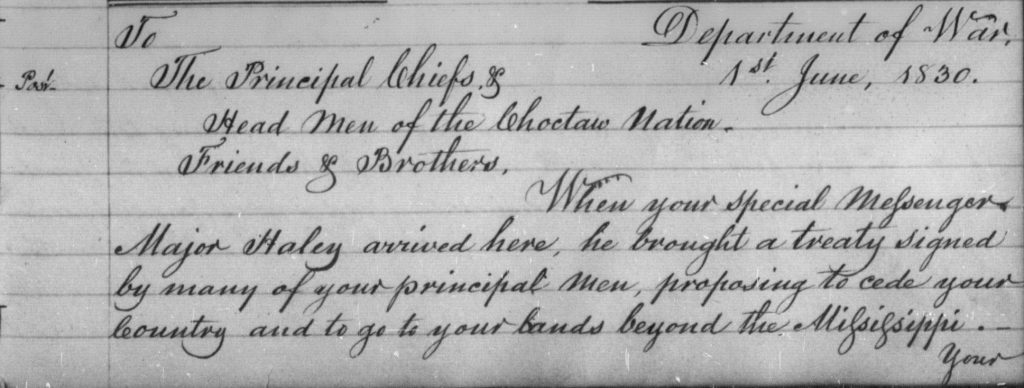 To Department of War,
Post. The Principal Chiefs, & 1st. June, 1830.
Head Men of the Choctaw Nation.
Friends & Brothers,
When your special Messenger
Major Haley arrived here, he brought a treaty signed
by many of your principal Men, proposing to cede your
Country and to go to your Lands beyond the Missisippi.
Your